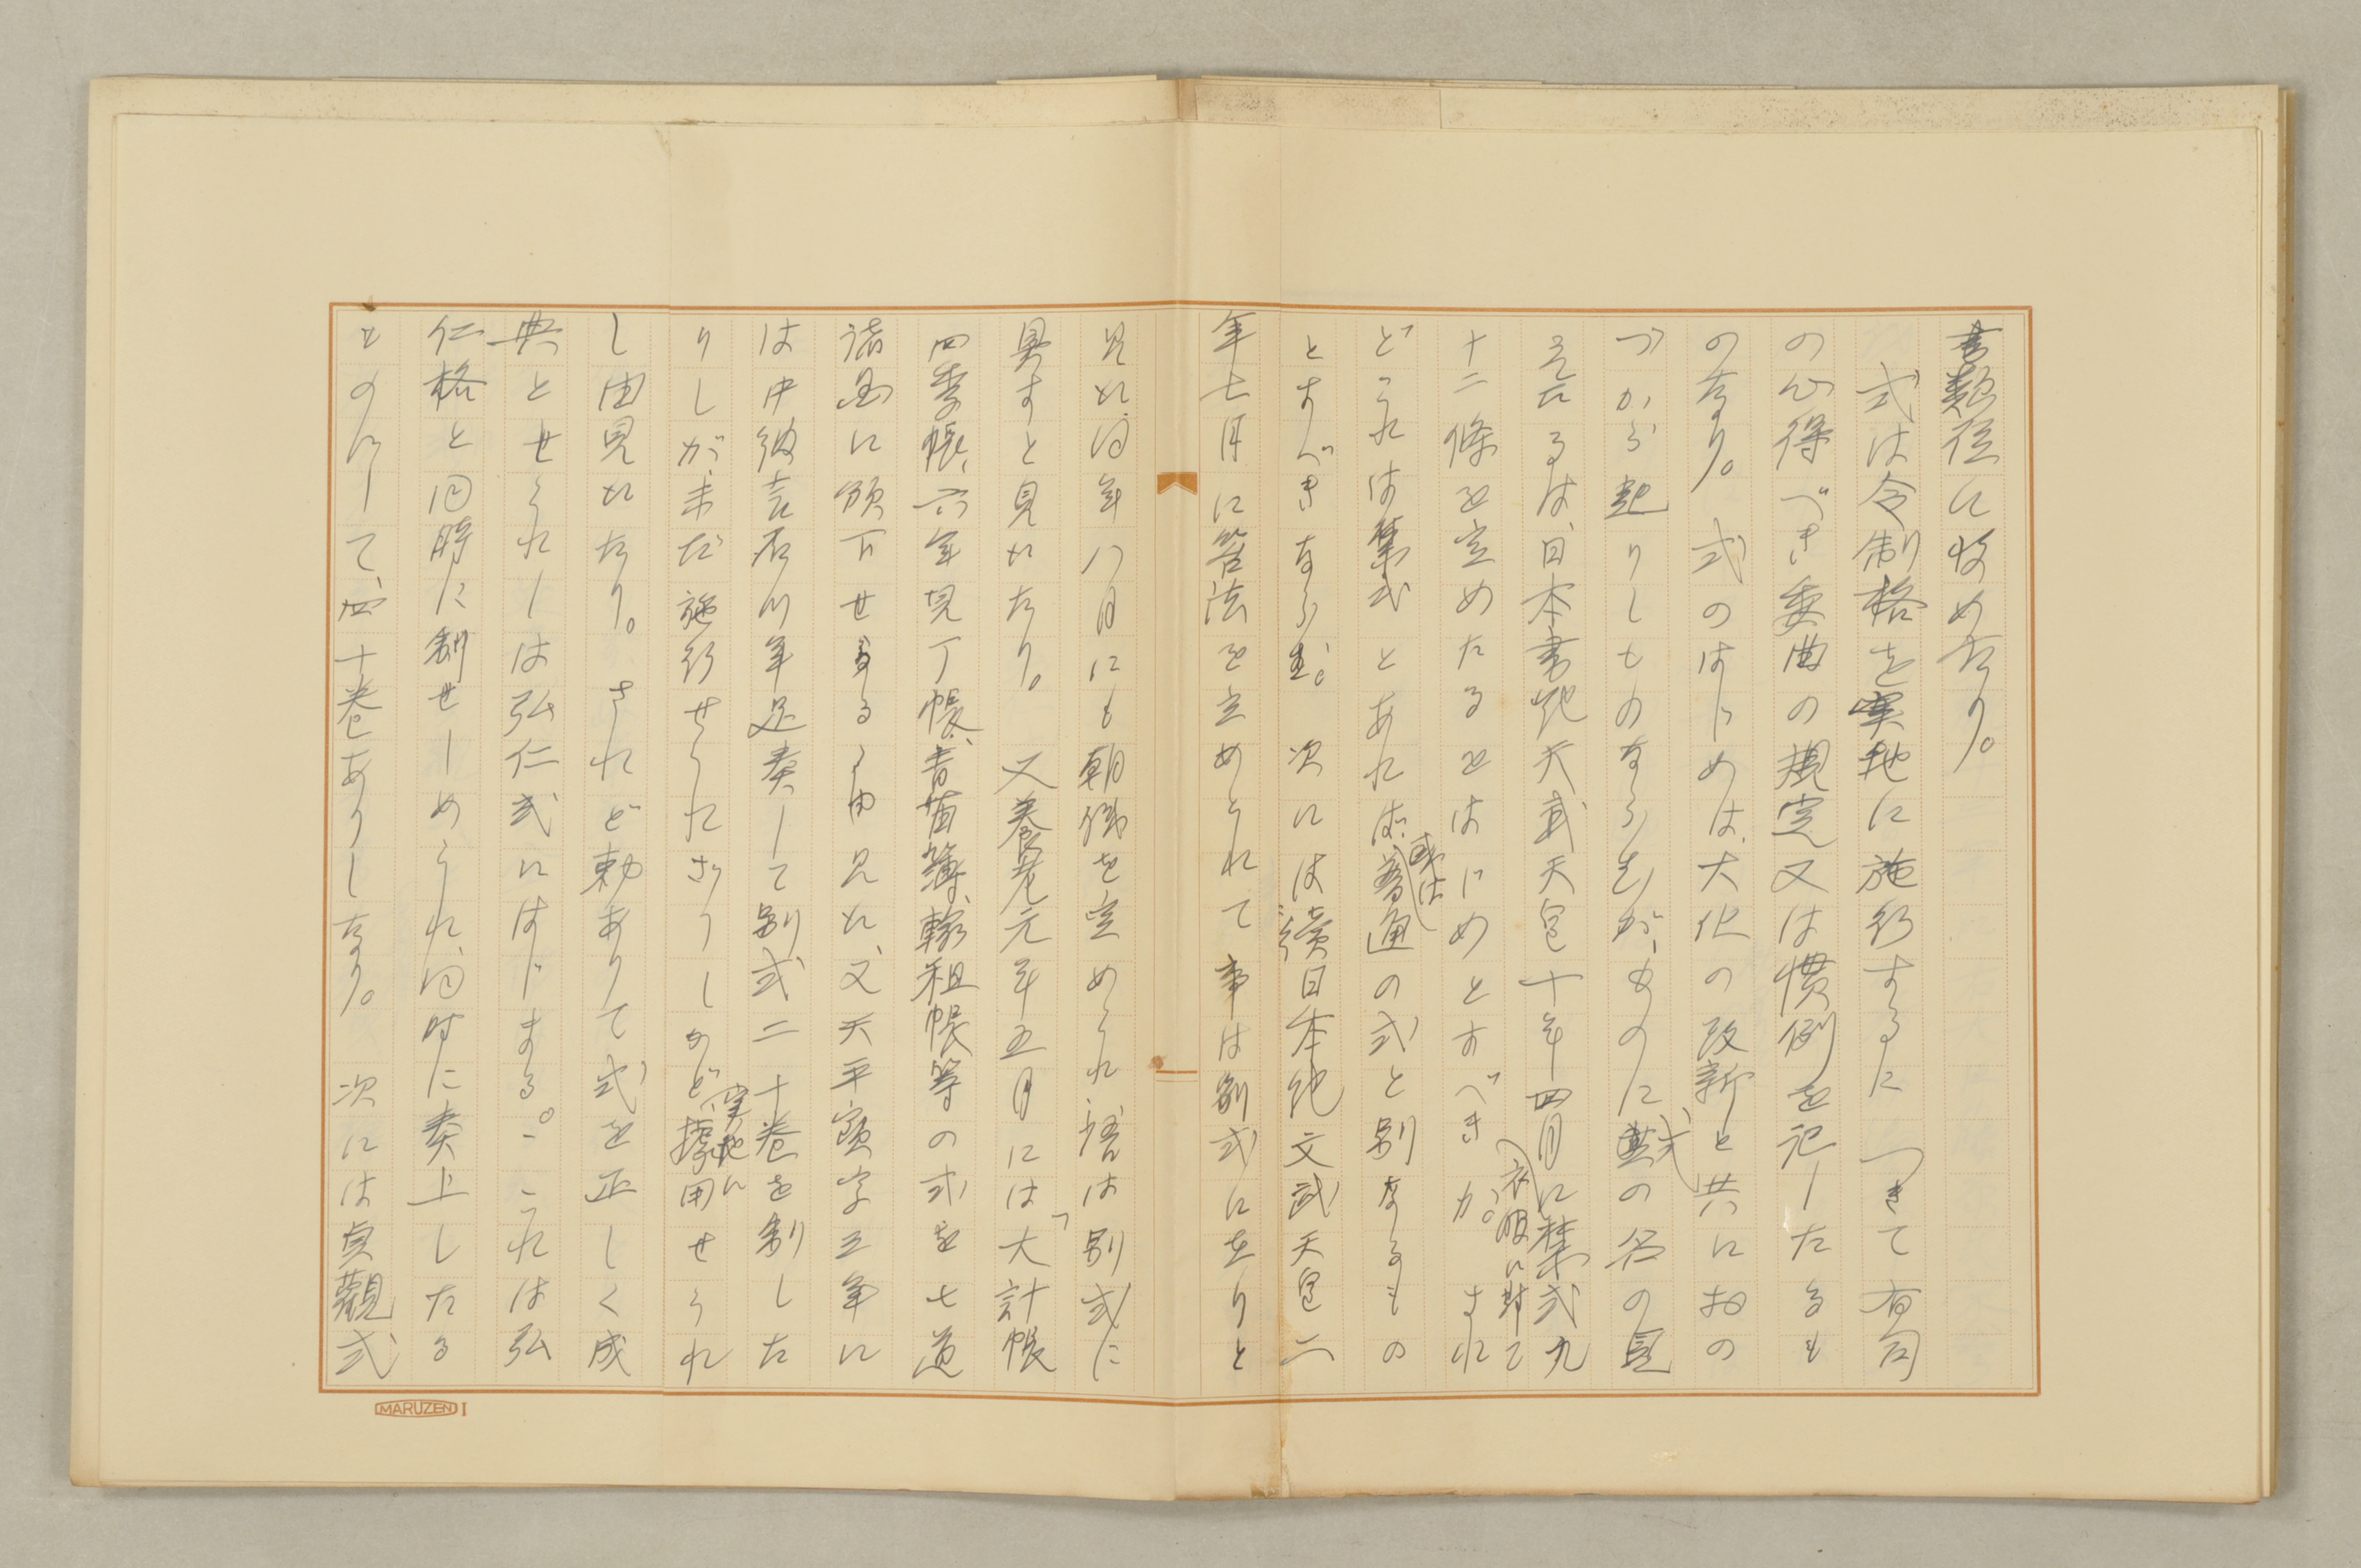 書類従に收めたり。
式は令制格を実地に施行するに つきて有司
の心得べき委曲の規定又は慣例を記したるも
のなり。式のはじめは、大化の改新と共におの
づから起りしものならむが、ものに式典の名の見
えたるは、日本書紀天武天皇十年四月に禁式九
衣服に対て
十二條を定めたるをはじめとすべきか。され
どこれは禁式とあれば、普通の式と別なるもの
或は
とすべきならむ。次には續日本紀文武天皇二
年七月に笞法を立めされて事は別式にありと
見れ、同年八月にも朝儀を定められ、語は別式に
具すと見れたり。又養老元年五月には「大計帳
四季帳、六年見丁帳、青苗簿、輸租帳等の式を七道
諸国に頒下せる由見れ、又天平寶字三年に
は中納言石川年足奏して別式二十卷を制した
りしが、未だ施行せられざりしかど、據用せられ
実地に
し由見れたり。されど勅ありて式を正しく成
典とせられしは弘仁式にはじまる。これは弘
仁格と同時に制せしめられ、同時に奏上したる
ものにして、四十卷ありしなり。次には貞觀式
MARUZEN I